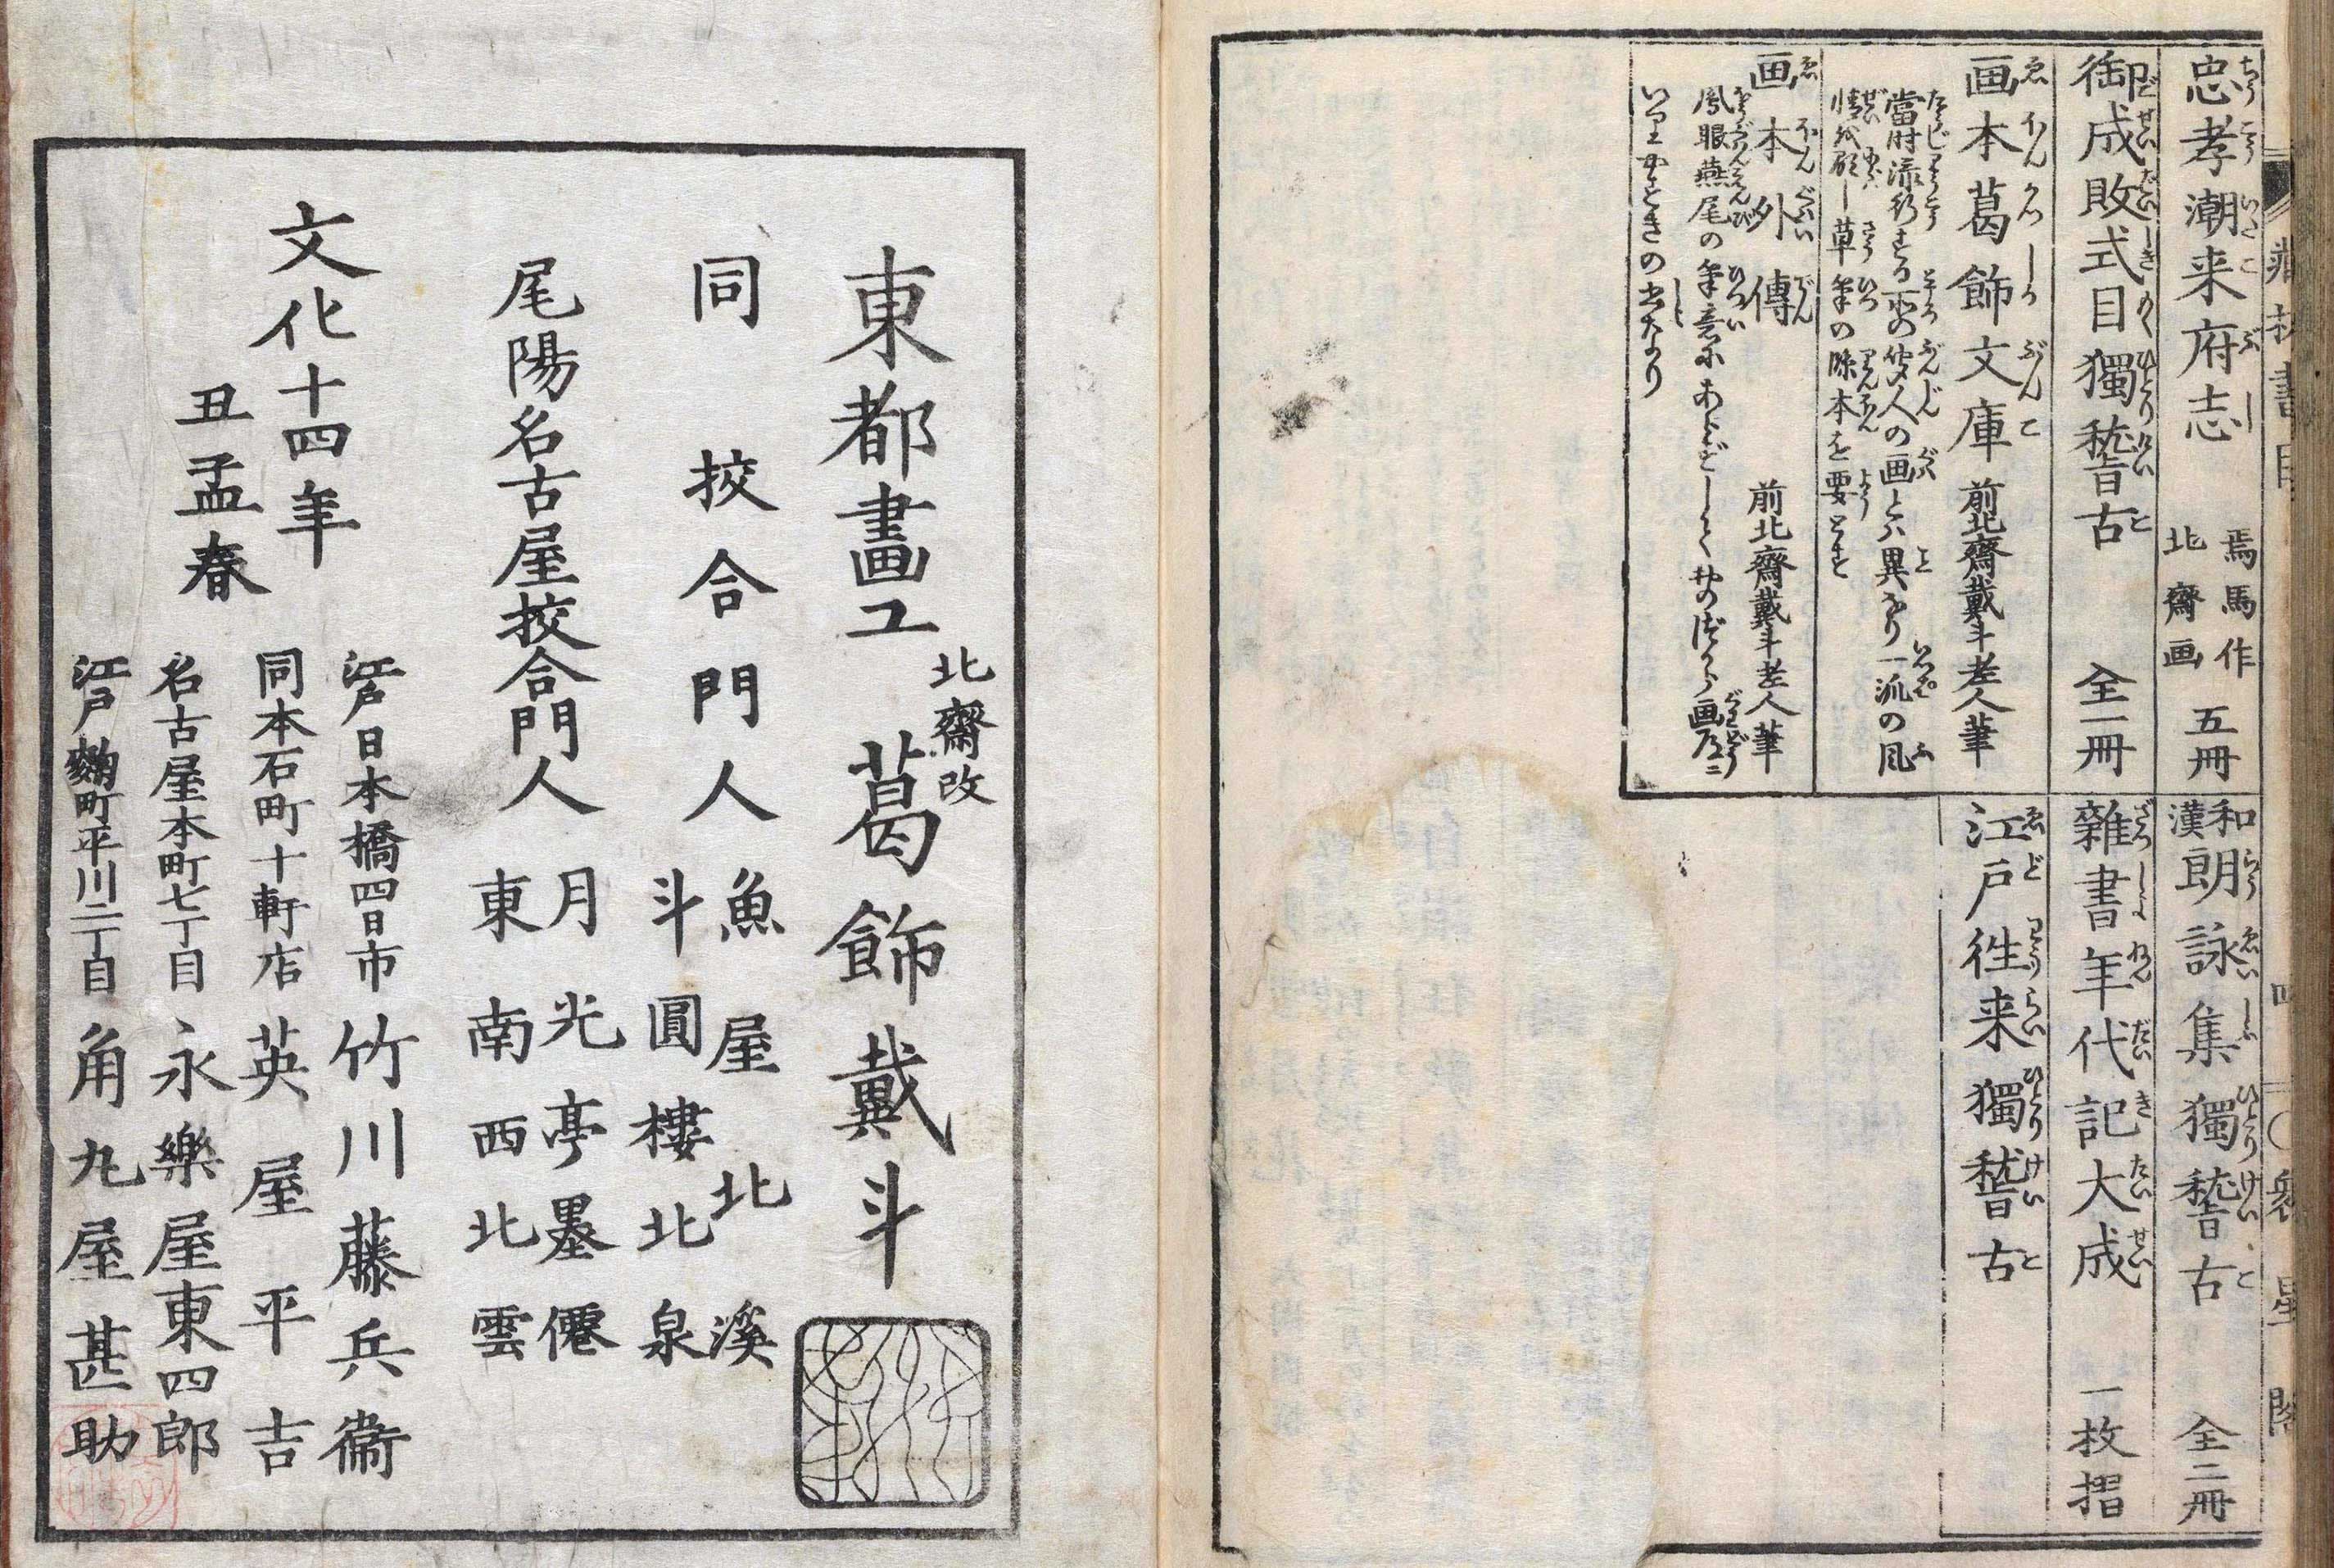 忠孝潮来府志 焉馬作 北齋画 五冊
御成敗式目獨稽古 全一冊
画本葛飾文庫 前北齋戴斗老人筆
當時流行する所の文人の画とハ異なり一流の風
情を顕し草筆の臨本を要とす
画本外傳 前北齋戴斗老人筆
和漢朗詠集獨稽古 全二冊
雜書年代記大成 一枚摺
江戸徃来獨稽古
東都畫工 北齋改 葛飾戴斗
同 挍合門人 魚屋北溪
斗圓樓北泉
尾陽名古屋挍合門人 月光亭墨僊
東南西北雲
文化十四年
丑孟春
江戸日本橋四日市 竹川藤兵衞
同本石町十軒店 英屋平吉
名古屋本町七丁目 永樂屋東四郎
江戸麹町平川二丁目 角丸屋甚助